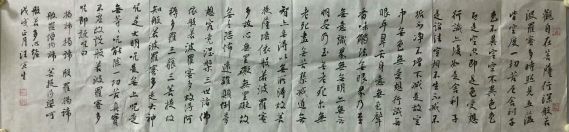 觀自在菩薩行深般若
波羅蜜多時照見五蘊
皆空度一切苦厄舍利子
色不異空空不異色色
行識亦復如是舍利子
是諸法空相不生不滅不
垢不淨不增不減是故空
中無色無受想行識無
眼耳鼻舌身意無色聲
香味觸法無眼界乃至
無意識界無無明亦無
無明盡乃至無老死亦無
老死盡無苦集滅道無
智亦無得以無所得故菩
提薩埵依般若波羅蜜
多故心無罣礙無罣礙故
無有恐怖遠離顛倒夢
想究竟涅槃三世諸佛
依般若波羅蜜多故得阿
耨多羅三藐三菩提故
知般若波羅蜜多是大神
咒是大明咒是無上咒是
無等等咒能除一切苦真實
不虛故說般若波羅蜜多
咒即說咒曰
揭諦揭諦 波羅揭諦
波羅僧揭諦 菩提薩婆訶
般若多心經